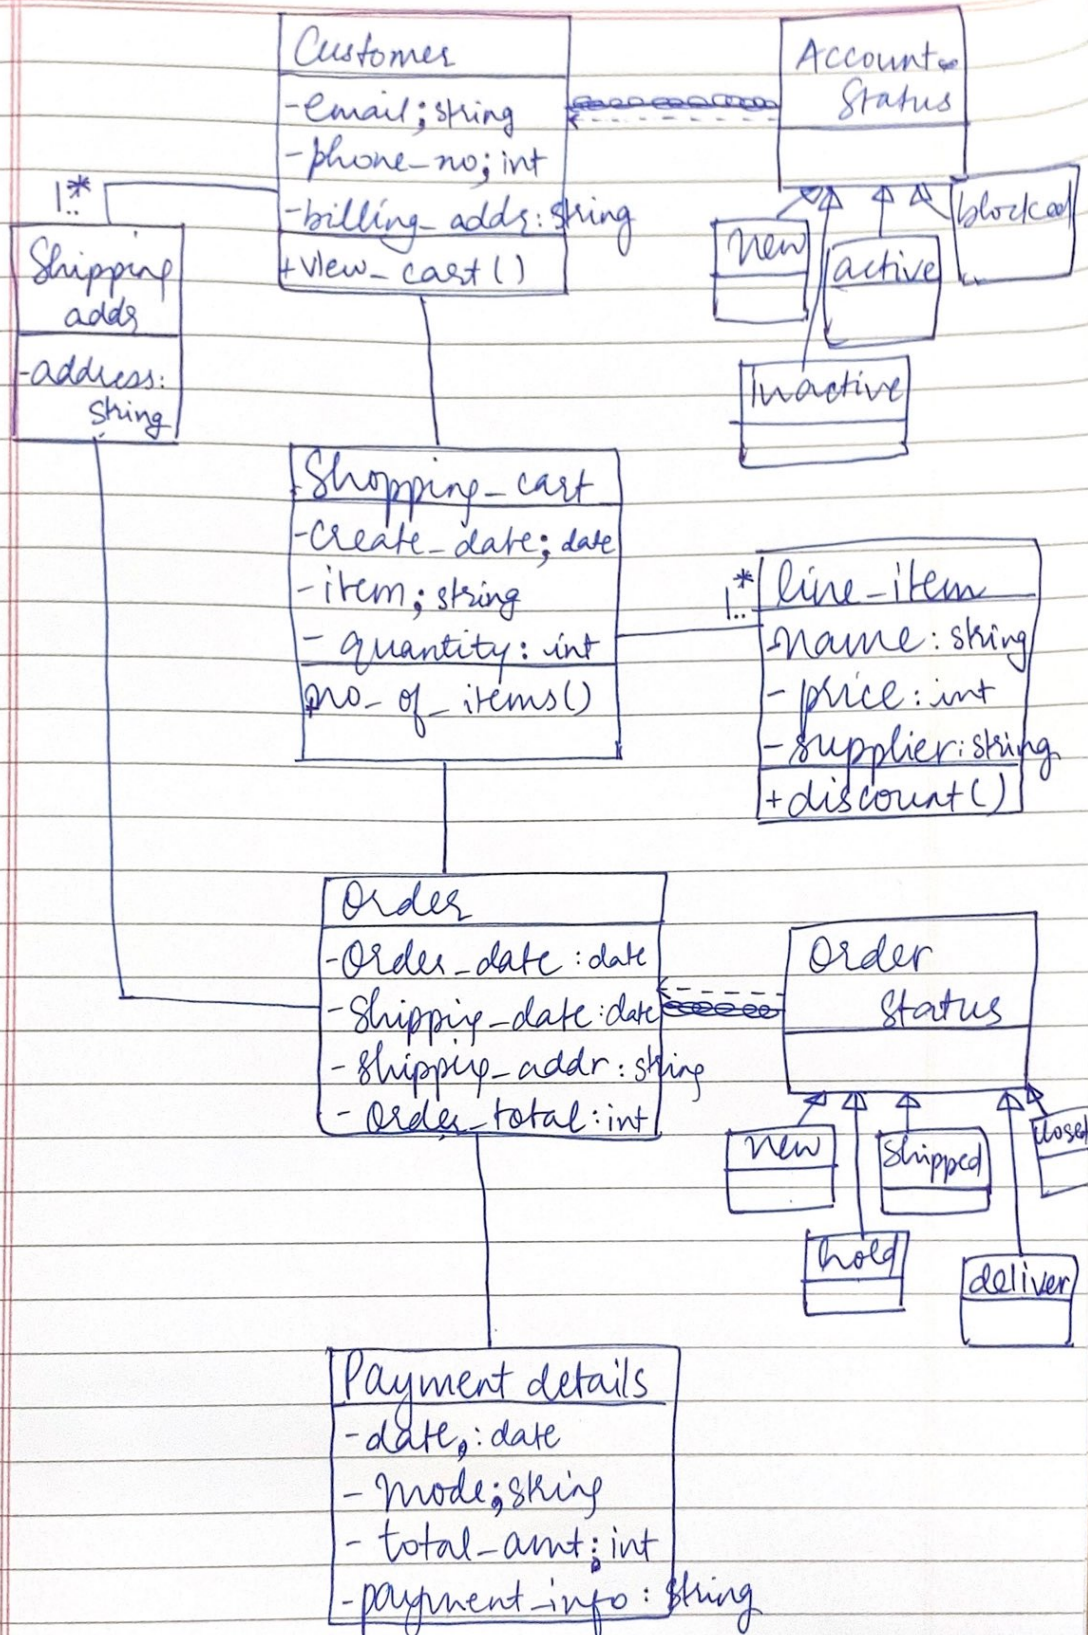 Customer
-email;string
-phone_no;int
-billing_addr:string
+view_cart()
Account
Status
new
active
blocked
Inactive
1..*
Shipping
addr
-address:
string
Shopping_cart
-create_date;date
-item;string
- quantity: int
no_of_items()
1..*
line_item
-name:string
-price:int
-supplier:string
+discount()
Order
-Order_date:date
-Shipping_date:date
-shipping_addr:string
-Order_total:int
Order
Status
new
shipped
closed
hold
deliver
Payment details
-date,:date
- Mode;string
- total_amt;int
-payment_info:string